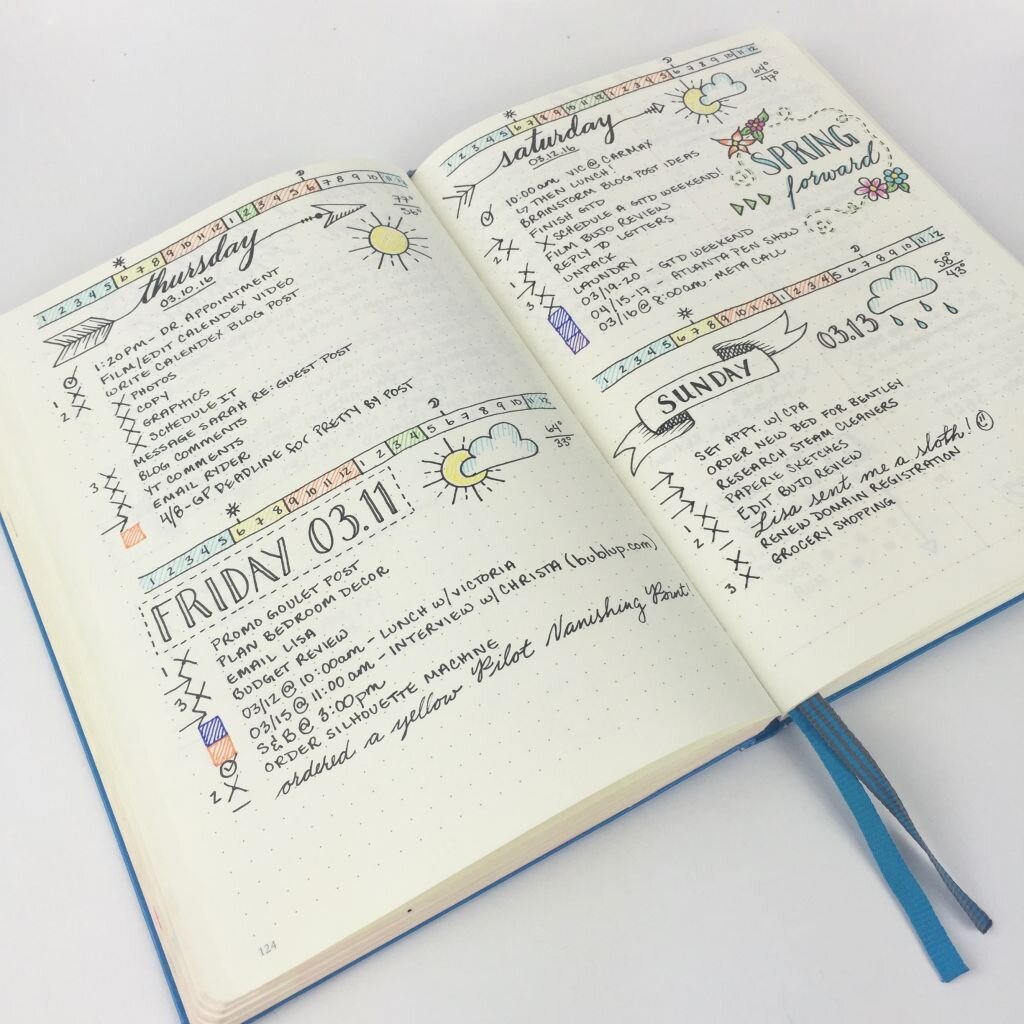 1 2 3 4 5 6 7 8 9 10 11 12 1 2 3 4 5 6 7 8 9 10 11 12
thursday
03.10.16
77°
56°
1:20PM - DR. APPOINTMENT
FILM/EDIT CALENDEX VIDEO
2 X WRITE CALENDEX BLOG POST
X PHOTOS
X COPY
X GRAPHICS
X SCHEDULE IT
MESSAGE SARAH RE: GUEST POST
3 X BLOG COMMENTS
X YT COMMENTS
X EMAIL RYDER
4/8 - GP DEADLINE for PRETTY BY POST
1 2 3 4 5 6 7 8 9 10 11 12 1 2 3 4 5 6 7 8 9 10 11 12
FRIDAY 03.11
64°
33°
1 X PROMO GOULET POST
PLAN BEDROOM DECOR
3 X EMAIL LISA
BUDGET REVIEW
03/12 @ 10:00am - LUNCH W/ VICTORIA
03/15 @ 11:00am - INTERVIEW W/ CHRISTA (bublup.com)
S&B @ 3:00pm
2 X ORDER SILHOUETTE MACHINE
– ordered a yellow Pilot Vanishing Point!
124
1 2 3 4 5 6 7 8 9 10 11 12 1 2 3 4 5 6 7 8 9 10 11 12
saturday
03.12.16
64°
47°
SPRING
forward
10:00am VIC @ CARMAX
↳ THEN LUNCH!
BRAINSTORM BLOG POST IDEAS
2 X FINISH GTD
X SCHEDULE A GTD WEEKEND!
FILM BUJO REVIEW
REPLY TO LETTERS
1 X UNPACK
X LAUNDRY
03/19-20 - GTD WEEKEND
04/15-17 - ATLANTA PEN SHOW
03/16 @ 8:00am - META CALL
1 2 3 4 5 6 7 8 9 10 11 12 1 2 3 4 5 6 7 8 9 10 11 12
SUNDAY
03.13
58°
43°
SET APPT. W/ CPA
ORDER NEW BED FOR BENTLEY
RESEARCH STEAM CLEANERS
PAPERIE SKETCHES
EDIT BUJO REVIEW
– Lisa sent me a sloth!
2 X RENEW DOMAIN REGISTRATION
3 X GROCERY SHOPPING